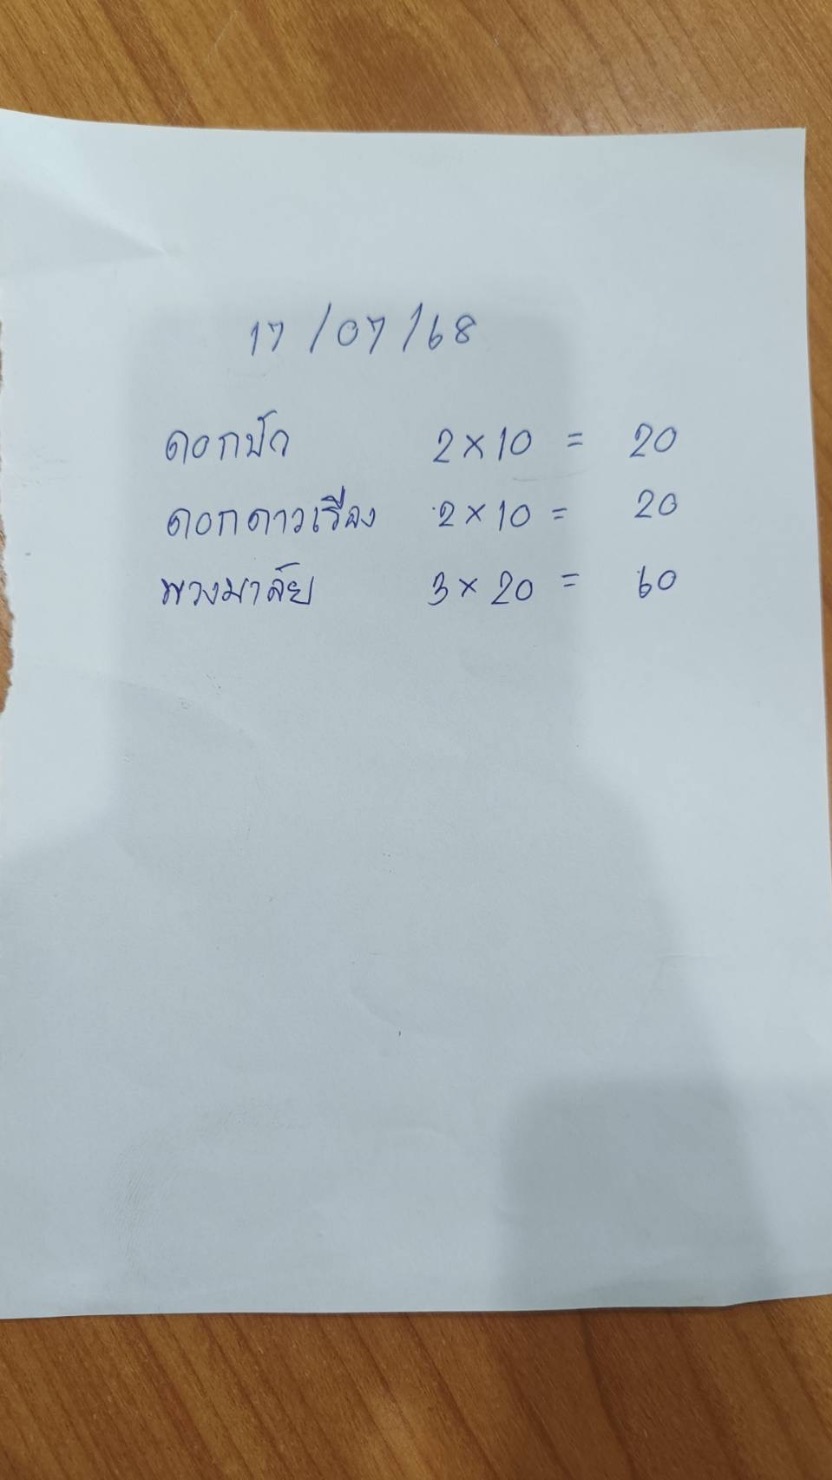 17/07/68
ดอกบัว 2 × 10 = 20
ดอกดาวเรือง 2 × 10 = 20
พวงมาลัย 3 × 20 = 60